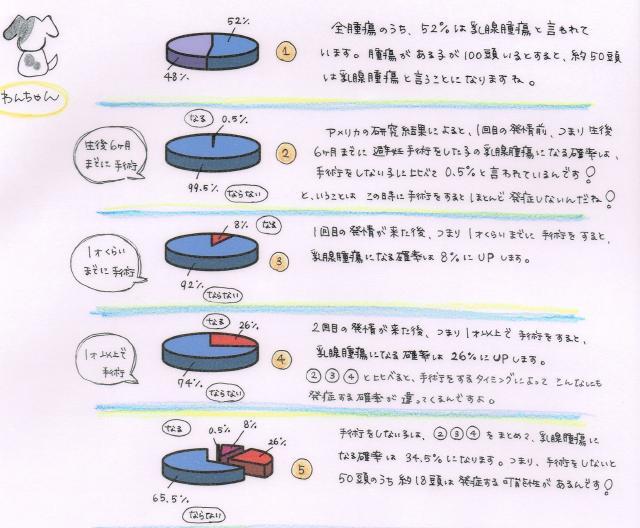 わんちゃん
52%
48%
1
全腫瘍のうち、52%は乳腺腫瘍と言われて
います。腫瘍がある子が100頭いるとすると、約50頭
は乳腺腫瘍と言うことになりますね。
生後6ヶ月
までに手術
なる
0.5%
99.5%
ならない
2
アメリカの研究結果によると、1回目の発情前、つまり生後
6ヶ月までに避妊手術をした子の乳腺腫瘍になる確率は、
手術をしない子に比べて0.5%と言われているんです!
と、いうことは この時に手術をするとほとんど発症しないんだね!
1才くらい
までに手術
8%
なる
92%
ならない
3
1回目の発情が来た後、つまり1才くらいまでに手術をすると、
乳腺腫瘍になる確率は8%にUPします。
1才以上で
手術
なる
26%
74%
ならない
4
2回目の発情が来た後、つまり1才以上で手術をすると、
乳腺腫瘍になる確率は26%にUPします。
②③④と比べると、手術をするタイミングによって こんなにも
発症する確率が違ってくるんですよ。
なる
0.5%
8%
26%
65.5%
ならない
5
手術をしない子は、②③④をまとめて、乳腺腫瘍に
なる確率は34.5%になります。つまり、手術をしないと
50頭のうち約18頭は発症する可能性があるんです!